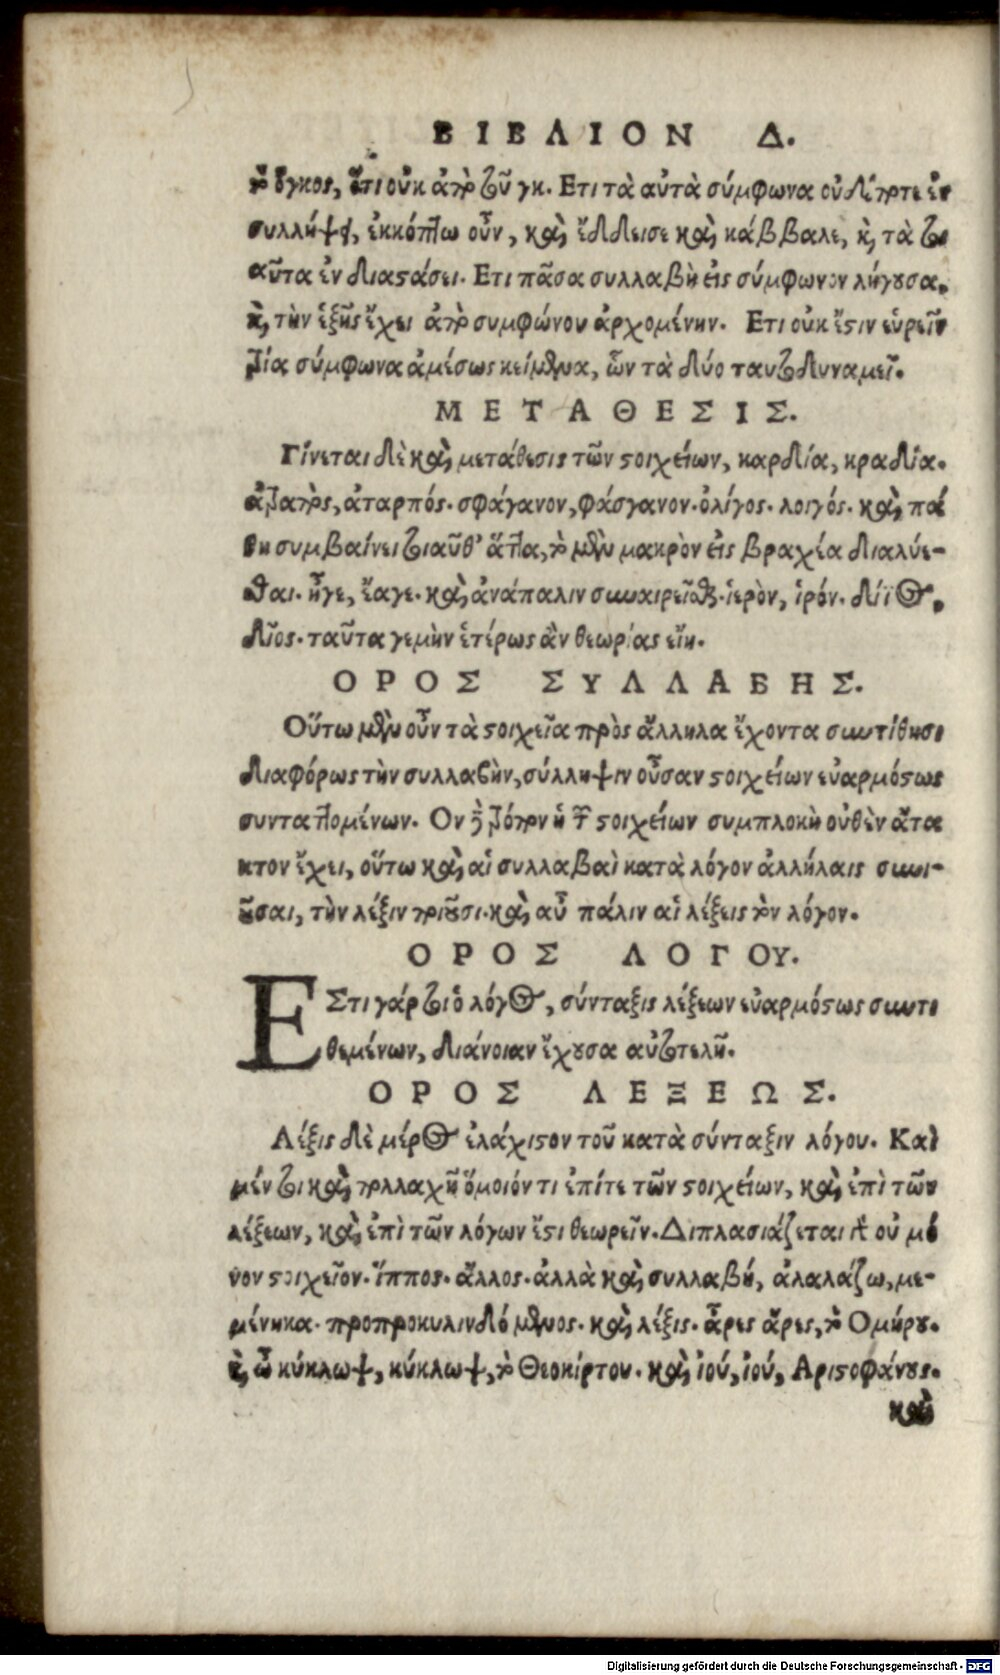 ΒΙΒΛΙΟΝ Δ.
τὸ ὄγκος, ἔτι οὐκ ἀπὸ τοῦ γκ. Ετι τὰ αὐτὰ σύμφωνα οὐδέποτε ἐν
συλλήψῃ, ἐκκόπτω οὖν, καὶ ἔλλεισε καὶ κάββαλε, καὶ τὰ τοι
αῦτα ἐν διαστάσει. Ετι πᾶσα συλλαβὴ εἰς σύμφωνον λήγουσα,
καὶ τὴν ἑξῆς ἔχει ἀπὸ συμφώνου ἀρχομένην. Ετι οὐκ ἔστιν εὑρεῖν
τρία σύμφωνα ἀμέσως κείμενα, ὧν τὰ δύο ταυτοδυναμεῖ.
ΜΕΤΑΘΕΣΙΣ.
Γίνεται δὲ καὶ μετάθεσις τῶν στοιχείων, καρδία, κραδία.
ἀτραπὸς, ἀταρπός. σφάγανον, φάσγανον. ὀλίγος. λοιγός. καὶ πά
θη συμβαίνει τοιαῦθ' ἅττα, τὸ μὲν μακρὸν εἰς βραχέα διαλύε-
σθαι. ἦγε, ἔαγε. καὶ ἀνάπαλιν συναιρεῖσθαι. ἱερὸν, ἱρόν. δίϊος,
δῖος. ταῦτα γε μὴν ἑτέρως ἂν θεωρίας εἴη.
ΟΡΟΣ ΣΥΛΛΑΒΗΣ.
Οὕτω μὲν οὖν τὰ στοιχεῖα πρὸς ἄλληλα ἔχοντα συντίθησι
διαφόρως τὴν συλλαβὴν, σύλληψιν οὖσαν στοιχείων εὐαρμόστως
συνταττομένων. Ον δὲ τρόπον ἡ τῶν στοιχείων συμπλοκὴ οὐθὲν ἄτα
κτον ἔχει, οὕτω καὶ αἱ συλλαβαὶ κατὰ λόγον ἀλλήλαις συνι-
οῦσαι, τὴν λέξιν ποιοῦσι. καὶ αὖ πάλιν αἱ λέξεις τὸν λόγον.
ΟΡΟΣ ΛΟΓΟΥ.
ΕΣτι γάρ τοι ὁ λόγος, σύνταξις λέξεων εὐαρμόστως συντι
θεμένων, διάνοιαν ἔχουσα αὐτοτελῆ.
ΟΡΟΣ ΛΕΞΕΩΣ.
Λέξις δὲ μέρος ἐλάχιστον τοῦ κατὰ σύνταξιν λόγου. Καὶ
μέν τοι καὶ πολλαχῆ ὅμοιόν τι ἐπί τε τῶν στοιχείων, καὶ ἐπὶ τῶν
λέξεων, καὶ ἐπὶ τῶν λόγων ἔστι θεωρεῖν. Διπλασιάζεται γὰρ οὐ μό
νον στοιχεῖον. ἵππος. ἄλλος. ἀλλὰ καὶ συλλαβή, ἀλαλάζω, με-
μένηκα. προπροκυλινδόμενος. καὶ λέξις. ἆρες ἄρες, τὸ Ομήρου.
καὶ, ὦ κύκλωψ, κύκλωψ, τὸ Θεοκίρτου. καὶ ἰού, ἰού, Αριστοφάνους.
καὶ
Digitalisierung gefördert durch die Deutsche Forschungsgemeinschaft · DFG